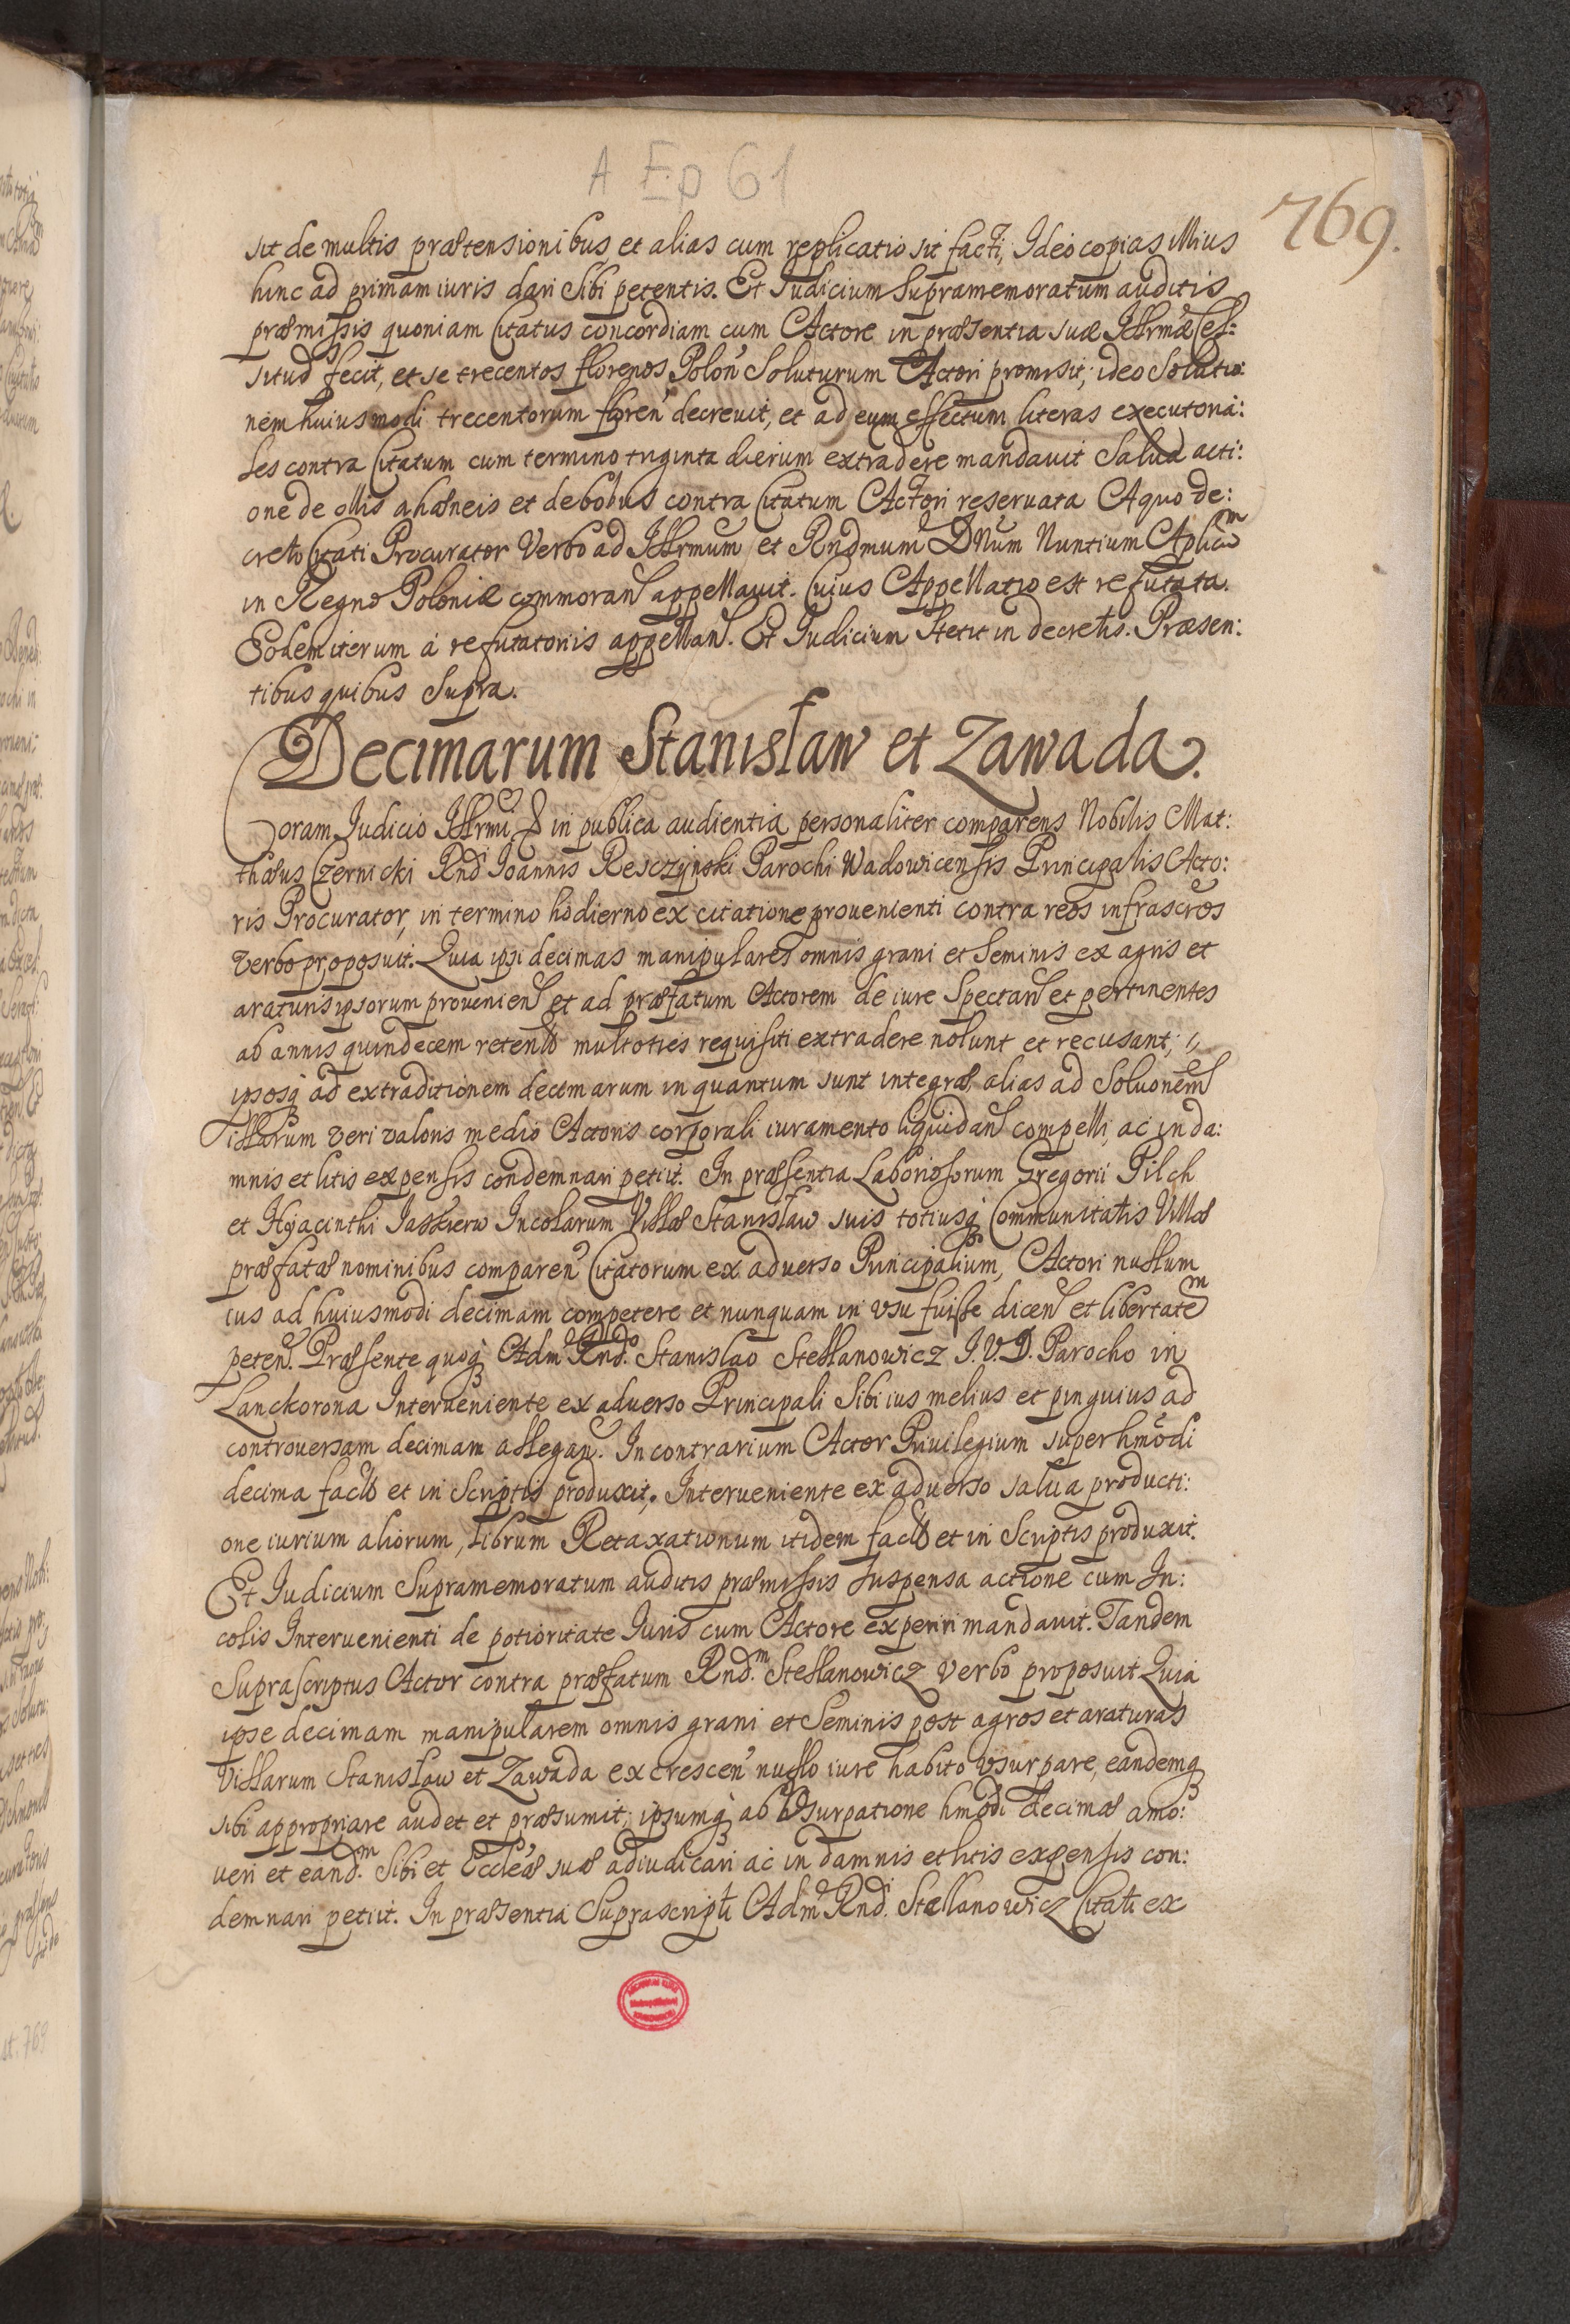 A Ep 61
769.
sit de multis prætensionibus et alias cum replicatio sit facti, Ideo copias illius
hinc ad primam iuris dari sibi petentis. Et Iudicium supramemoratum auditis
præmissis quoniam Citatus concordiam cum Actore in præsentia suæ Illrmæ Cel:
situd fecit, et se trecentos florenos Polon̄ soluturum Actori promisit, ideo solutio:
nem huiusmodi trecentorum floren̄ decreuit, et ad eum effectum literas executoria:
les contra Citatum cum termino triginta dierum extradere mandauit salua acti:
one de ollis ahæneis et de bobus contra Citatum Actori reseruata A quo de:
creto Citati Procurator Verbo ad Illrmum et Rndmum Dnum Nuntium Aplicum
in Regno Poloniæ commoran appellauit. Cuius Appellatio est refutata.
Eodem iterum à refutatoriis appellan. Et Iudicium stetit in decretis. Præsen:
tibus quibus supra.
Decimarum Stanisław et Zawada.
Coram Iudicio Illrmi D in publica audientia personaliter comparens Nobilis Mat:
thæus Czernicki Rndi Ioannis Resczynski Parochi Wadowicensis Principalis Acto:
ris Procurator, in termino hodierno ex citatione prouenienti contra reos infrascros
verbo proposuit. Quia ipsi decimas manipulares omnis grani et seminis ex agris et
araturis ipsorum prouenien et ad præfatum Actorem de iure spectan et pertinentes
ab annis quindecem retentas multoties requisiti extradere nolunt et recusant,
ipsosq ad extraditionem decimarum in quantum sunt integræ, alias ad soluonem
illarum veri valoris medio Actoris corporali iuramento liquidan compelli, ac in da:
mnis et litis expensis condemnari petiit. In præsentia Laboriosorum Gregorii Pilch
et Hyacinthi Iaskierw Incolarum Villæ Stanisław suis totiusq Communitatis Villæ
præfatæ nominibus comparen Citatorum ex aduerso Principalium, Actori nullum
ius ad huiusmodi decimam competere et nunquam in vsu fuisse dicen et libertatem
peten. Præsente quoq Adm Rndo. Stanislao Stellanowicz I.V.D. Parocho in
Lanckorona Interueniente ex aduerso Principali sibi ius melius et pinguius ad
controuersam decimam allegan. In contrarium Actor Priuilegium super hmodi
decima facto et in scriptis produxit, Interueniente ex aduerso salua producti:
one iurium aliorum, Librum Retaxationum itidem facto et in scriptis produxit.
Et Iudicium supramemoratum auditis præmissis suspensa actione cum In:
colis Interuenienti de potioritate Iuris cum Actore experiri mandauit. Tandem
suprascriptus Actor contra præfatum Rndm. Stellanowicz verbo proposuit Quia
ipse decimam manipularem omnis grani et seminis post agros et araturas
Villarum Stanisław et Zawada excrescen nullo iure habito vsurpare, eandemq
sibi appropriare audet et præsumit, ipsumq ab vsurpatione hmodi decimæ amo:
ueri et eandm. sibi et Eccleæ suæ adiudicari ac in damnis et litis expensis con:
demnari petiit. In præsentia suprascripti Adm Rndi. Stellanowicz Citati ex